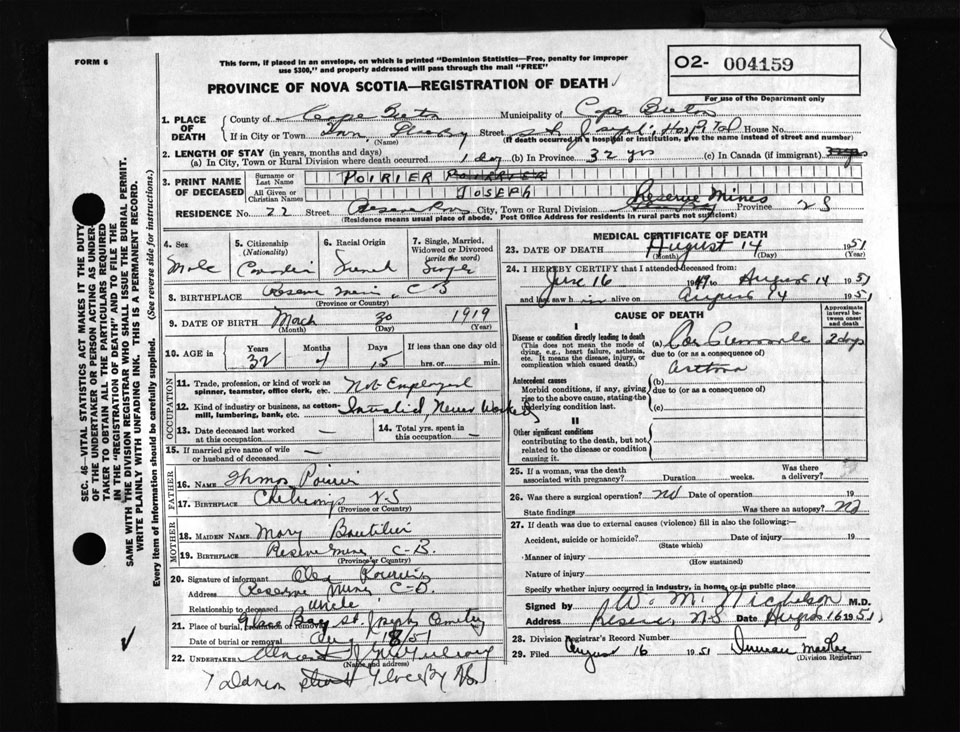 FORM 6
This form, if placed in an envelope, on which is printed "Dominion Statistics—Free, penalty for improper
use $300," and properly addressed will pass through the mail "FREE"
O2- 004159
PROVINCE OF NOVA SCOTIA—REGISTRATION OF DEATH
For use of the Department only
1. PLACE OF DEATH
County of Cape Breton Municipality of Cape Breton
If in City or Town Street St. Joseph's Hospital House No.
(Name) (If death occurred in a hospital or institution, give the name instead of street and number)
2. LENGTH OF STAY (in years, months and days)
(a) In City, Town or Rural Division where death occurred 1 day (b) In Province 32 yrs (c) In Canada (if immigrant)
3. PRINT NAME OF DECEASED
Surname or Last Name POIRIER
All Given or Christian Names JOSEPH
RESIDENCE No. 22 Street City, Town or Rural Division Reserve Mines Province NS
(Residence means usual place of abode. Post Office Address for residents in rural parts not sufficient)
4. Sex Male
5. Citizenship (Nationality) Canadian
6. Racial Origin French
7. Single, Married, Widowed or Divorced (write the word) Single
8. BIRTHPLACE Reserve Mines C B
(Province or Country)
9. DATE OF BIRTH March 30 1919
(Month) (Day) (Year)
10. AGE in Years 32 Months 4 Days 15 If less than one day old hrs. or min.
OCCUPATION
11. Trade, profession, or kind of work as spinner, teamster, office clerk, etc. Not Employed
12. Kind of industry or business, as cotton-mill, lumbering, bank, etc. Invalid, Never Worked
13. Date deceased last worked at this occupation —
14. Total yrs. spent in this occupation —
15. If married give name of wife or husband of deceased —
FATHER
16. NAME Poirier
17. BIRTHPLACE N.S
(Province or Country)
MOTHER
18. MAIDEN NAME Mary Boutilier
19. BIRTHPLACE Reserve Mines C-B.
(Province or Country)
20. Signature of informant Alex Poirier
Address Reserve Mines C-B.
Relationship to deceased uncle
21. Place of burial, cremation or removal Glace Bay St. Joseph Cemetery
Date of burial or removal Aug 18/51
22. UNDERTAKER
(Name and address)
MEDICAL CERTIFICATE OF DEATH
23. DATE OF DEATH August 14 1951
(Month) (Day) (Year)
24. I HEREBY CERTIFY that I attended deceased from
June 16 1949 to August 14 1951
and last saw him alive on August 14 1951
CAUSE OF DEATH
Approximate interval between onset and death
I
Disease or condition directly leading to death
(This does not mean the mode of dying, e.g., heart failure, asthenia, etc. It means the disease, injury, or complication which caused death.)
(a) 2 days
due to (or as a consequence of)
Asthma
Antecedent causes
Morbid conditions, if any, giving rise to the above cause, stating the underlying condition last.
(b)
due to (or as a consequence of)
(c)
II
Other significant conditions
contributing to the death, but not related to the disease or condition causing it.
25. If a woman, was the death associated with pregnancy? Duration weeks. Was there a delivery?
26. Was there a surgical operation? No Date of operation 19
State findings Was there an autopsy? No
27. If death was due to external causes (violence) fill in also the following:—
Accident, suicide or homicide? Date of injury 19
(State which)
Manner of injury
(How sustained)
Nature of injury
Specify whether injury occurred in industry, in home, or in public place
Signed by W. M. Nicholson M.D.
Address Reserve, N.S Date August 16 1951
28. Division Registrar's Record Number
29. Filed August 16 1951
(Division Registrar)
SEC. 46—VITAL STATISTICS ACT MAKES IT THE DUTY
OF THE UNDERTAKER OR PERSON ACTING AS UNDER-
TAKER TO OBTAIN ALL THE PARTICULARS REQUIRED
IN THE "REGISTRATION OF DEATH" AND TO FILE THE
SAME WITH THE DIVISION REGISTRAR WHO SHALL ISSUE THE BURIAL PERMIT.
WRITE PLAINLY WITH UNFADING INK. THIS IS A PERMANENT RECORD.
Every item of information should be carefully supplied. (See reverse side for instructions.)